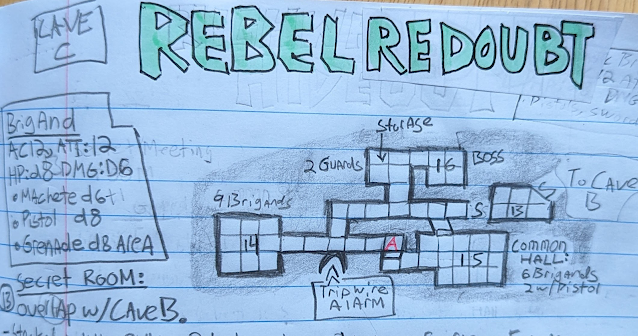 CAVE
C
REBEL REDOUBT
BrigAnd
AC12, ATT:12
HP:d8 DMG:D6
• MAchete d6+1
• Pistol d8
• GreNAde d8 AreA
Meeting
StorAge
2 Guards
16
BOSS
9 Brigands
14
S
13
To CAve
B
A
15
Common
HALL:
6 Brigands
2 w/Pistol
Tripwire
AlARM
Secret ROOM:
13
overlAp w/CAve B.